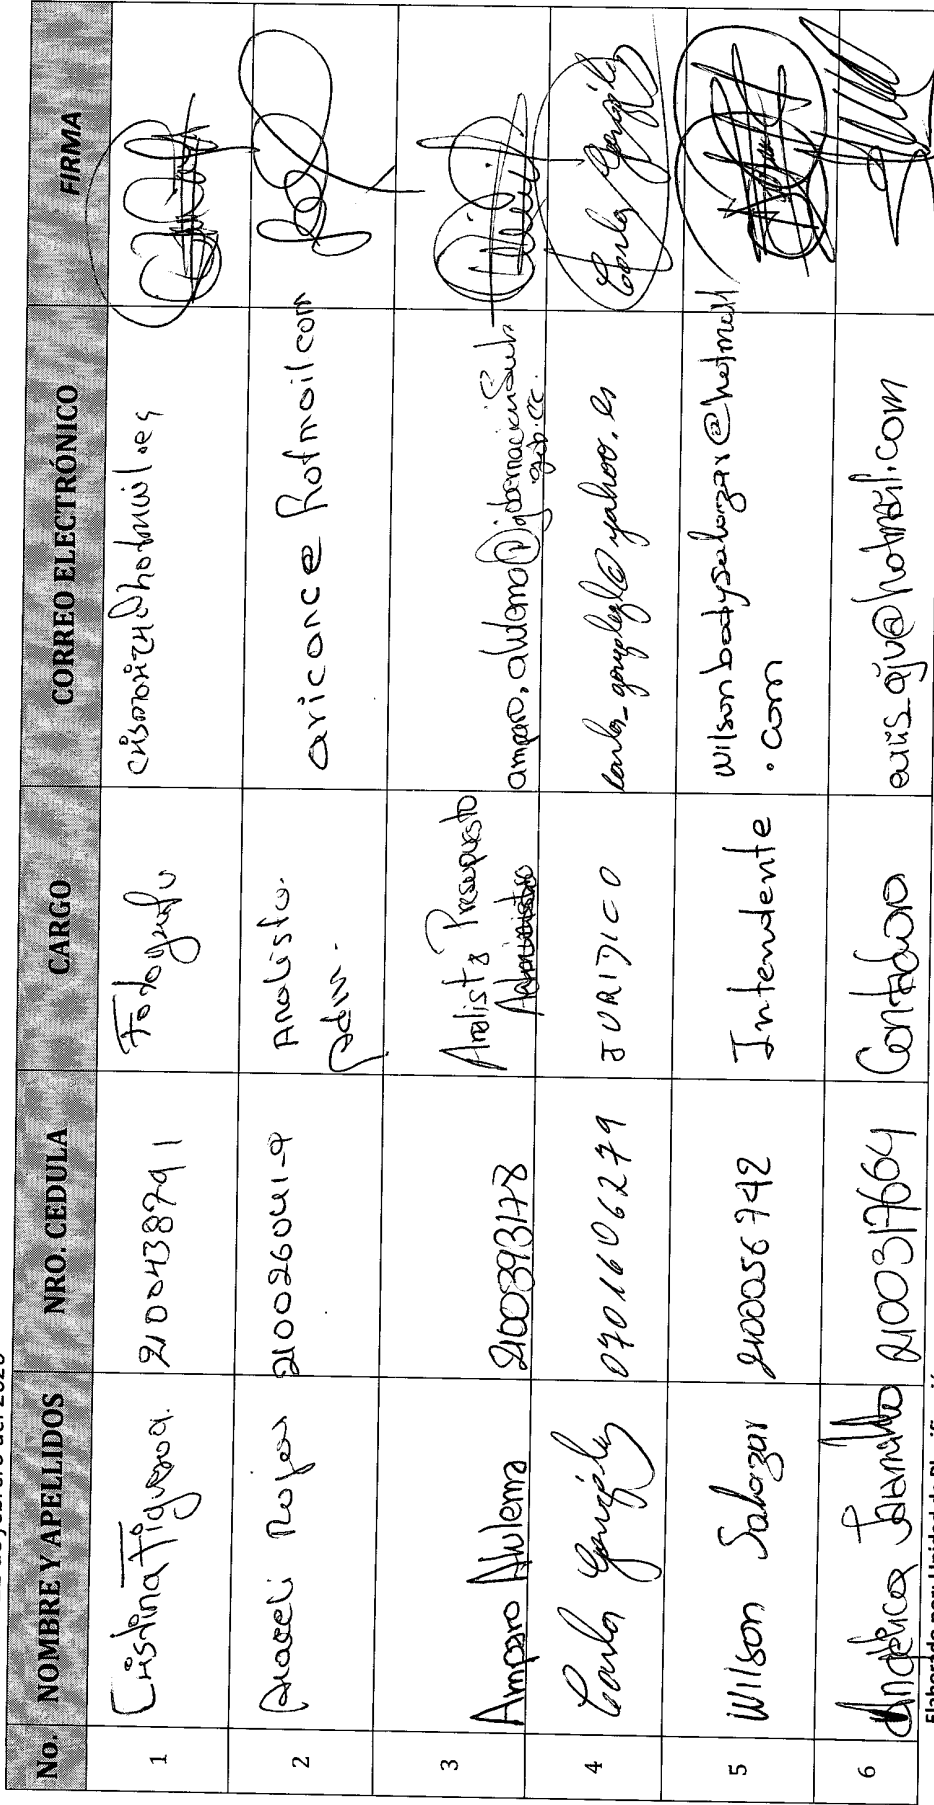 febrero del 2020
No. NOMBRE Y APELLIDOS NRO. CEDULA CARGO CORREO ELECTRÓNICO FIRMA
1 Cristina Figueroa. 2100438791 Fotografo
2 Araceli Rojas 210026041-9 Analista. aricance hotmail com
Adm.
3 Amparo Aulema 2100393178 Analista Presupuesto amparo.aulema@gobernacionSucb
Administrativo gob.ec.
4 Carla González 0701606279 JURIDICO carla_gonzlezl@yahoo.es Carla González
5 Wilson Salazar 2100056742 Intendente wilsonbadysalazar@hotmail
.com
6 Angélica Jaramillo 2100317664 Contadora eliis_ajv@hotmail.com
Elaborado por: Unidad de Planificación